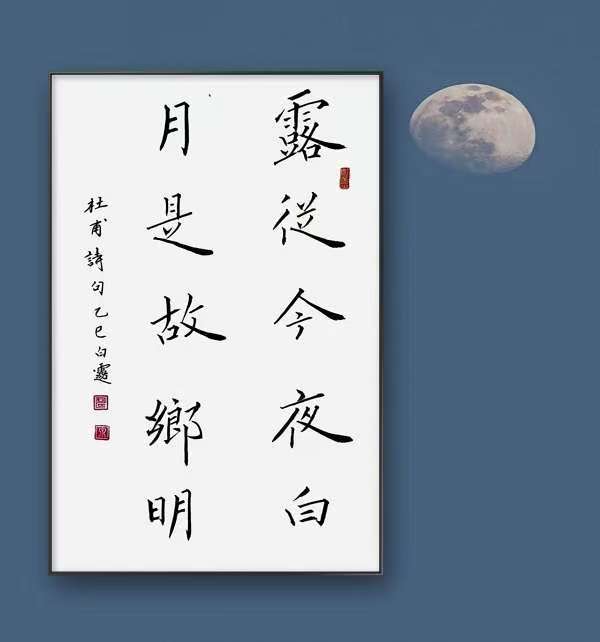 露從今夜白
月是故鄉明
杜甫詩句乙巳白露